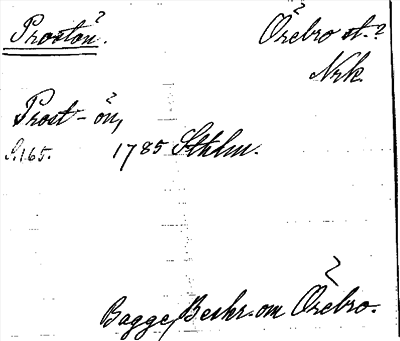 Prostön.
Örebro st.?
Nrk.
Prost-ön,
S.165. 1785 Sthlm.
Bagge, Beskr. om Örebro.